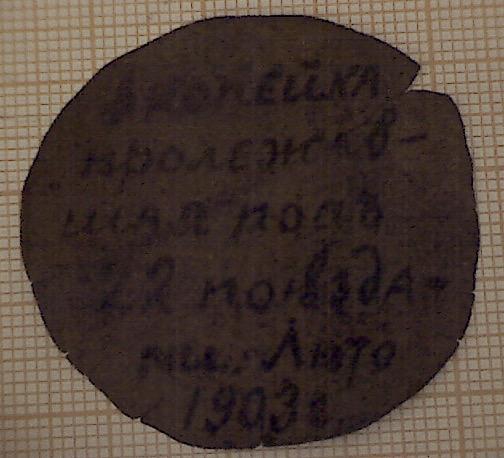 КОПЕЙКА
пролежав-
шая подъ
22 поѣзда-
ми. Лѣто
1903г.